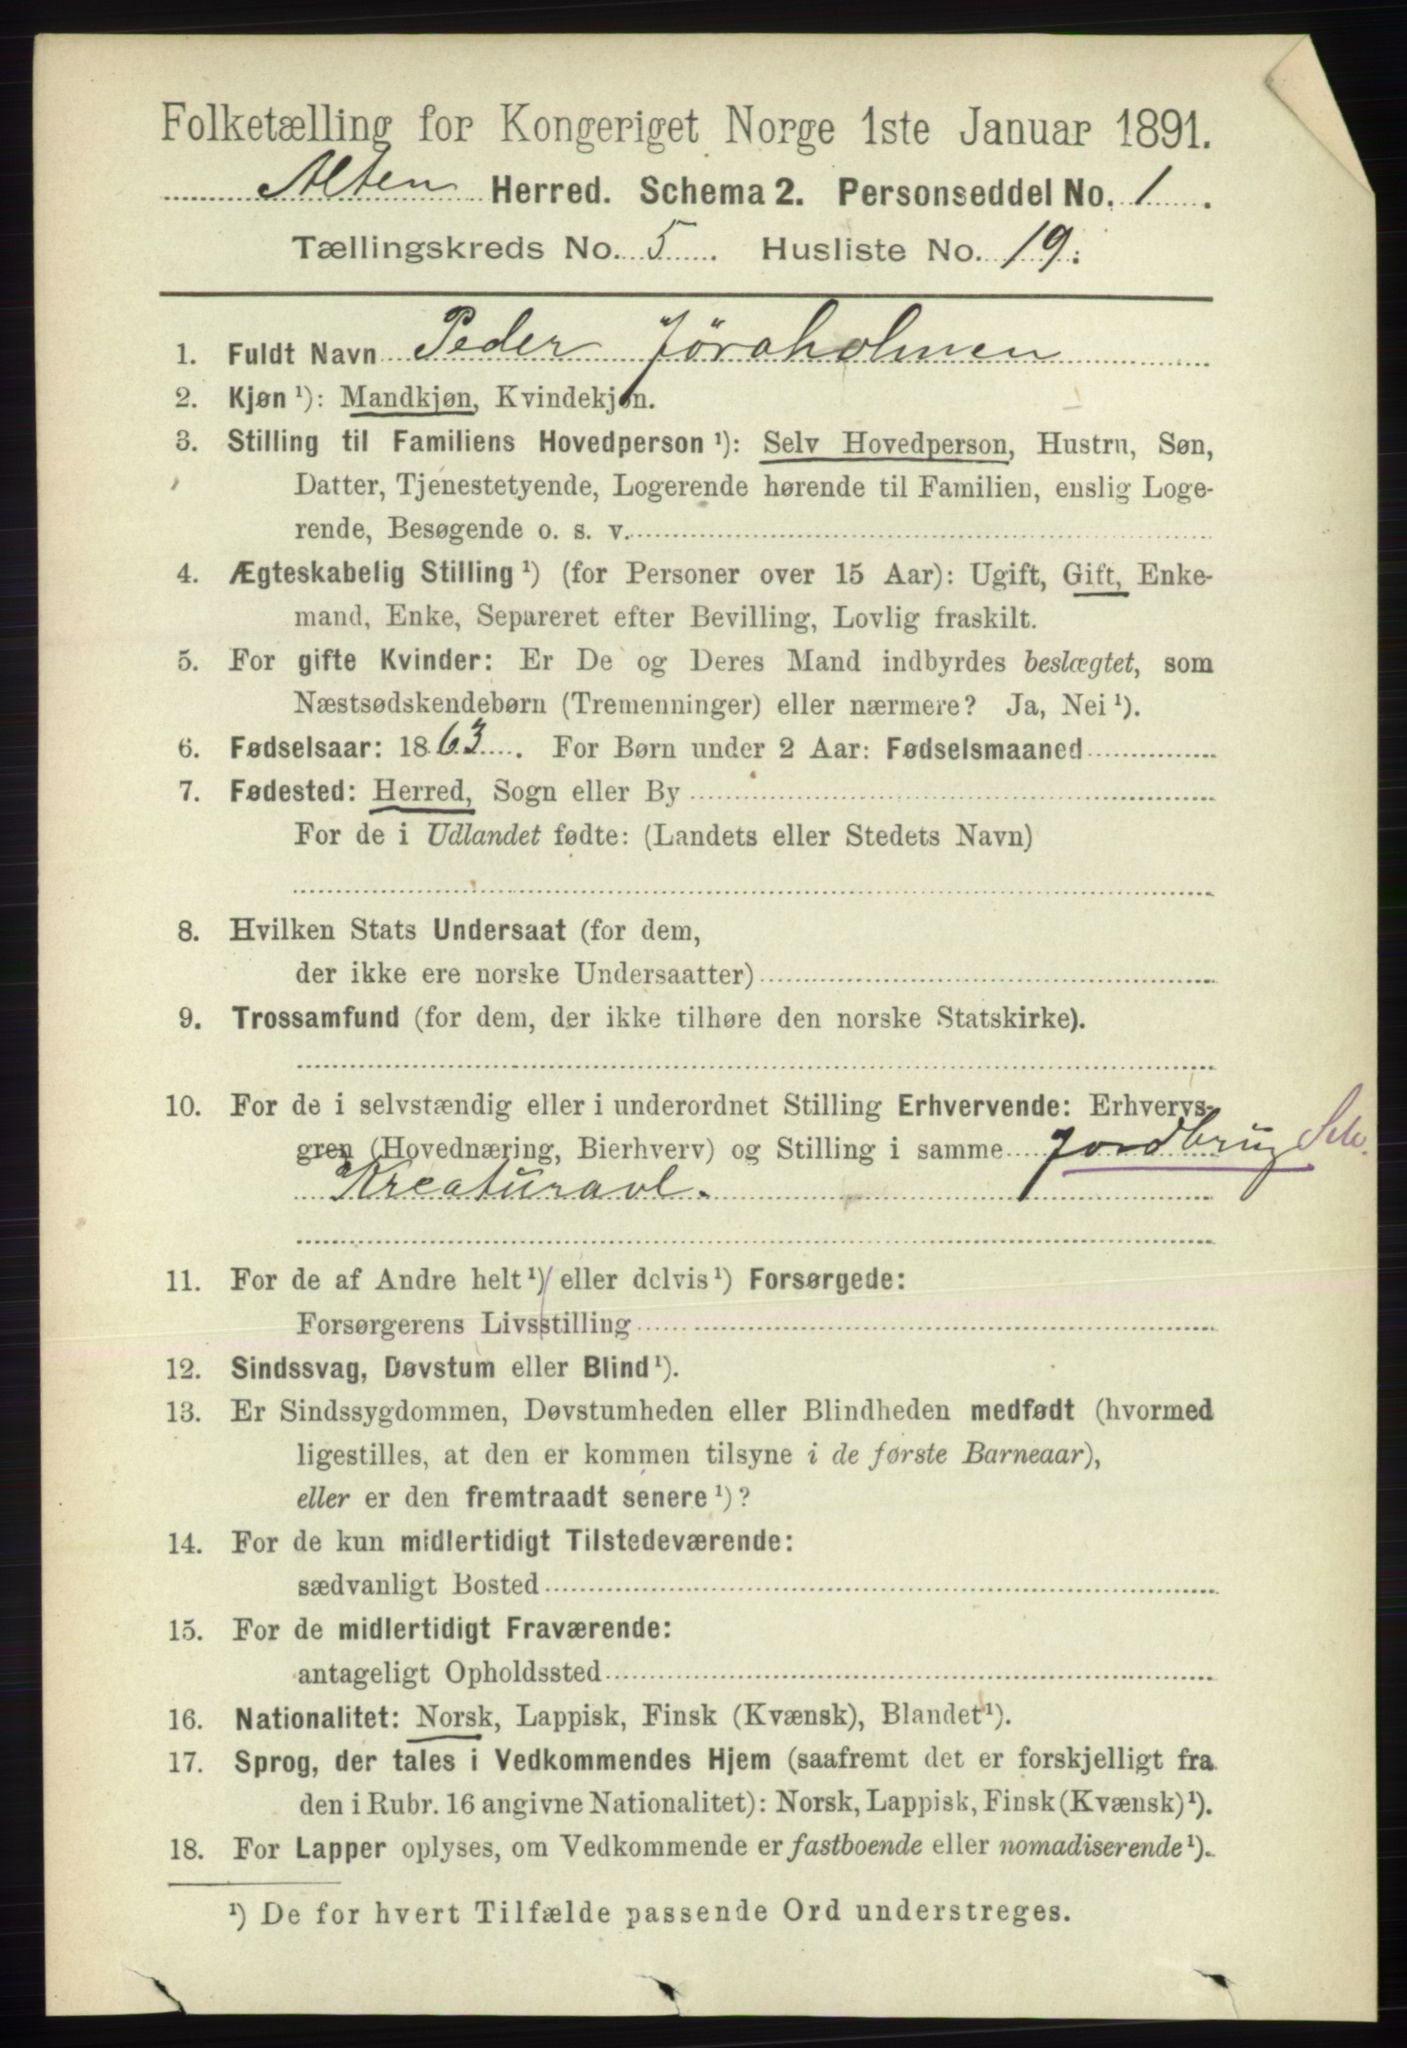 Folketælling for Kongeriget Norge 1ste Januar 1891.
Alten Herred. Schema 2. Personseddel No. 1.
Tællingskreds No. 5. Husliste No. 19.
1. Fuldt Navn Peder Jøraholmen
2. Kjøn ¹): Mandkjøn, Kvindekjøn.
3. Stilling til Familiens Hovedperson ¹): Selv Hovedperson, Hustru, Søn,
Datter, Tjenestetyende, Logerende hørende til Familien, enslig Loge-
rende, Besøgende o. s. v.
4. Ægteskabelig Stilling ¹) (for Personer over 15 Aar): Ugift, Gift, Enke-
mand, Enke, Separeret efter Bevilling, Lovlig fraskilt.
5. For gifte Kvinder: Er De og Deres Mand indbyrdes beslægtet, som
Næstsødskendebørn (Tremenninger) eller nærmere? Ja, Nei ¹).
6. Fødselsaar: 1863. For Børn under 2 Aar: Fødselsmaaned
7. Fødested: Herred, Sogn eller By
For de i Udlandet fødte: (Landets eller Stedets Navn)
8. Hvilken Stats Undersaat (for dem,
der ikke ere norske Undersaatter)
9. Trossamfund (for dem, der ikke tilhøre den norske Statskirke).
10. For de i selvstændig eller i underordnet Stilling Erhvervende: Erhvervs-
gren (Hovednæring, Bierhverv) og Stilling i samme Jordbrug Selv.
Kreaturavl.
11. For de af Andre helt ¹) eller delvis ¹) Forsørgede:
Forsørgerens Livsstilling
12. Sindssvag, Døvstum eller Blind ¹).
13. Er Sindssygdommen, Døvstumheden eller Blindheden medfødt (hvormed
ligestilles, at den er kommen tilsyne i de første Barneaar),
eller er den fremtraadt senere ¹)?
14. For de kun midlertidigt Tilstedeværende:
sædvanligt Bosted
15. For de midlertidigt Fraværende:
antageligt Opholdssted
16. Nationalitet: Norsk, Lappisk, Finsk (Kvænsk), Blandet ¹).
17. Sprog, der tales i Vedkommendes Hjem (saafremt det er forskjelligt fra
den i Rubr. 16 angivne Nationalitet): Norsk, Lappisk, Finsk (Kvænsk) ¹).
18. For Lapper oplyses, om Vedkommende er fastboende eller nomadiserende ¹).
¹) De for hvert Tilfælde passende Ord understreges.